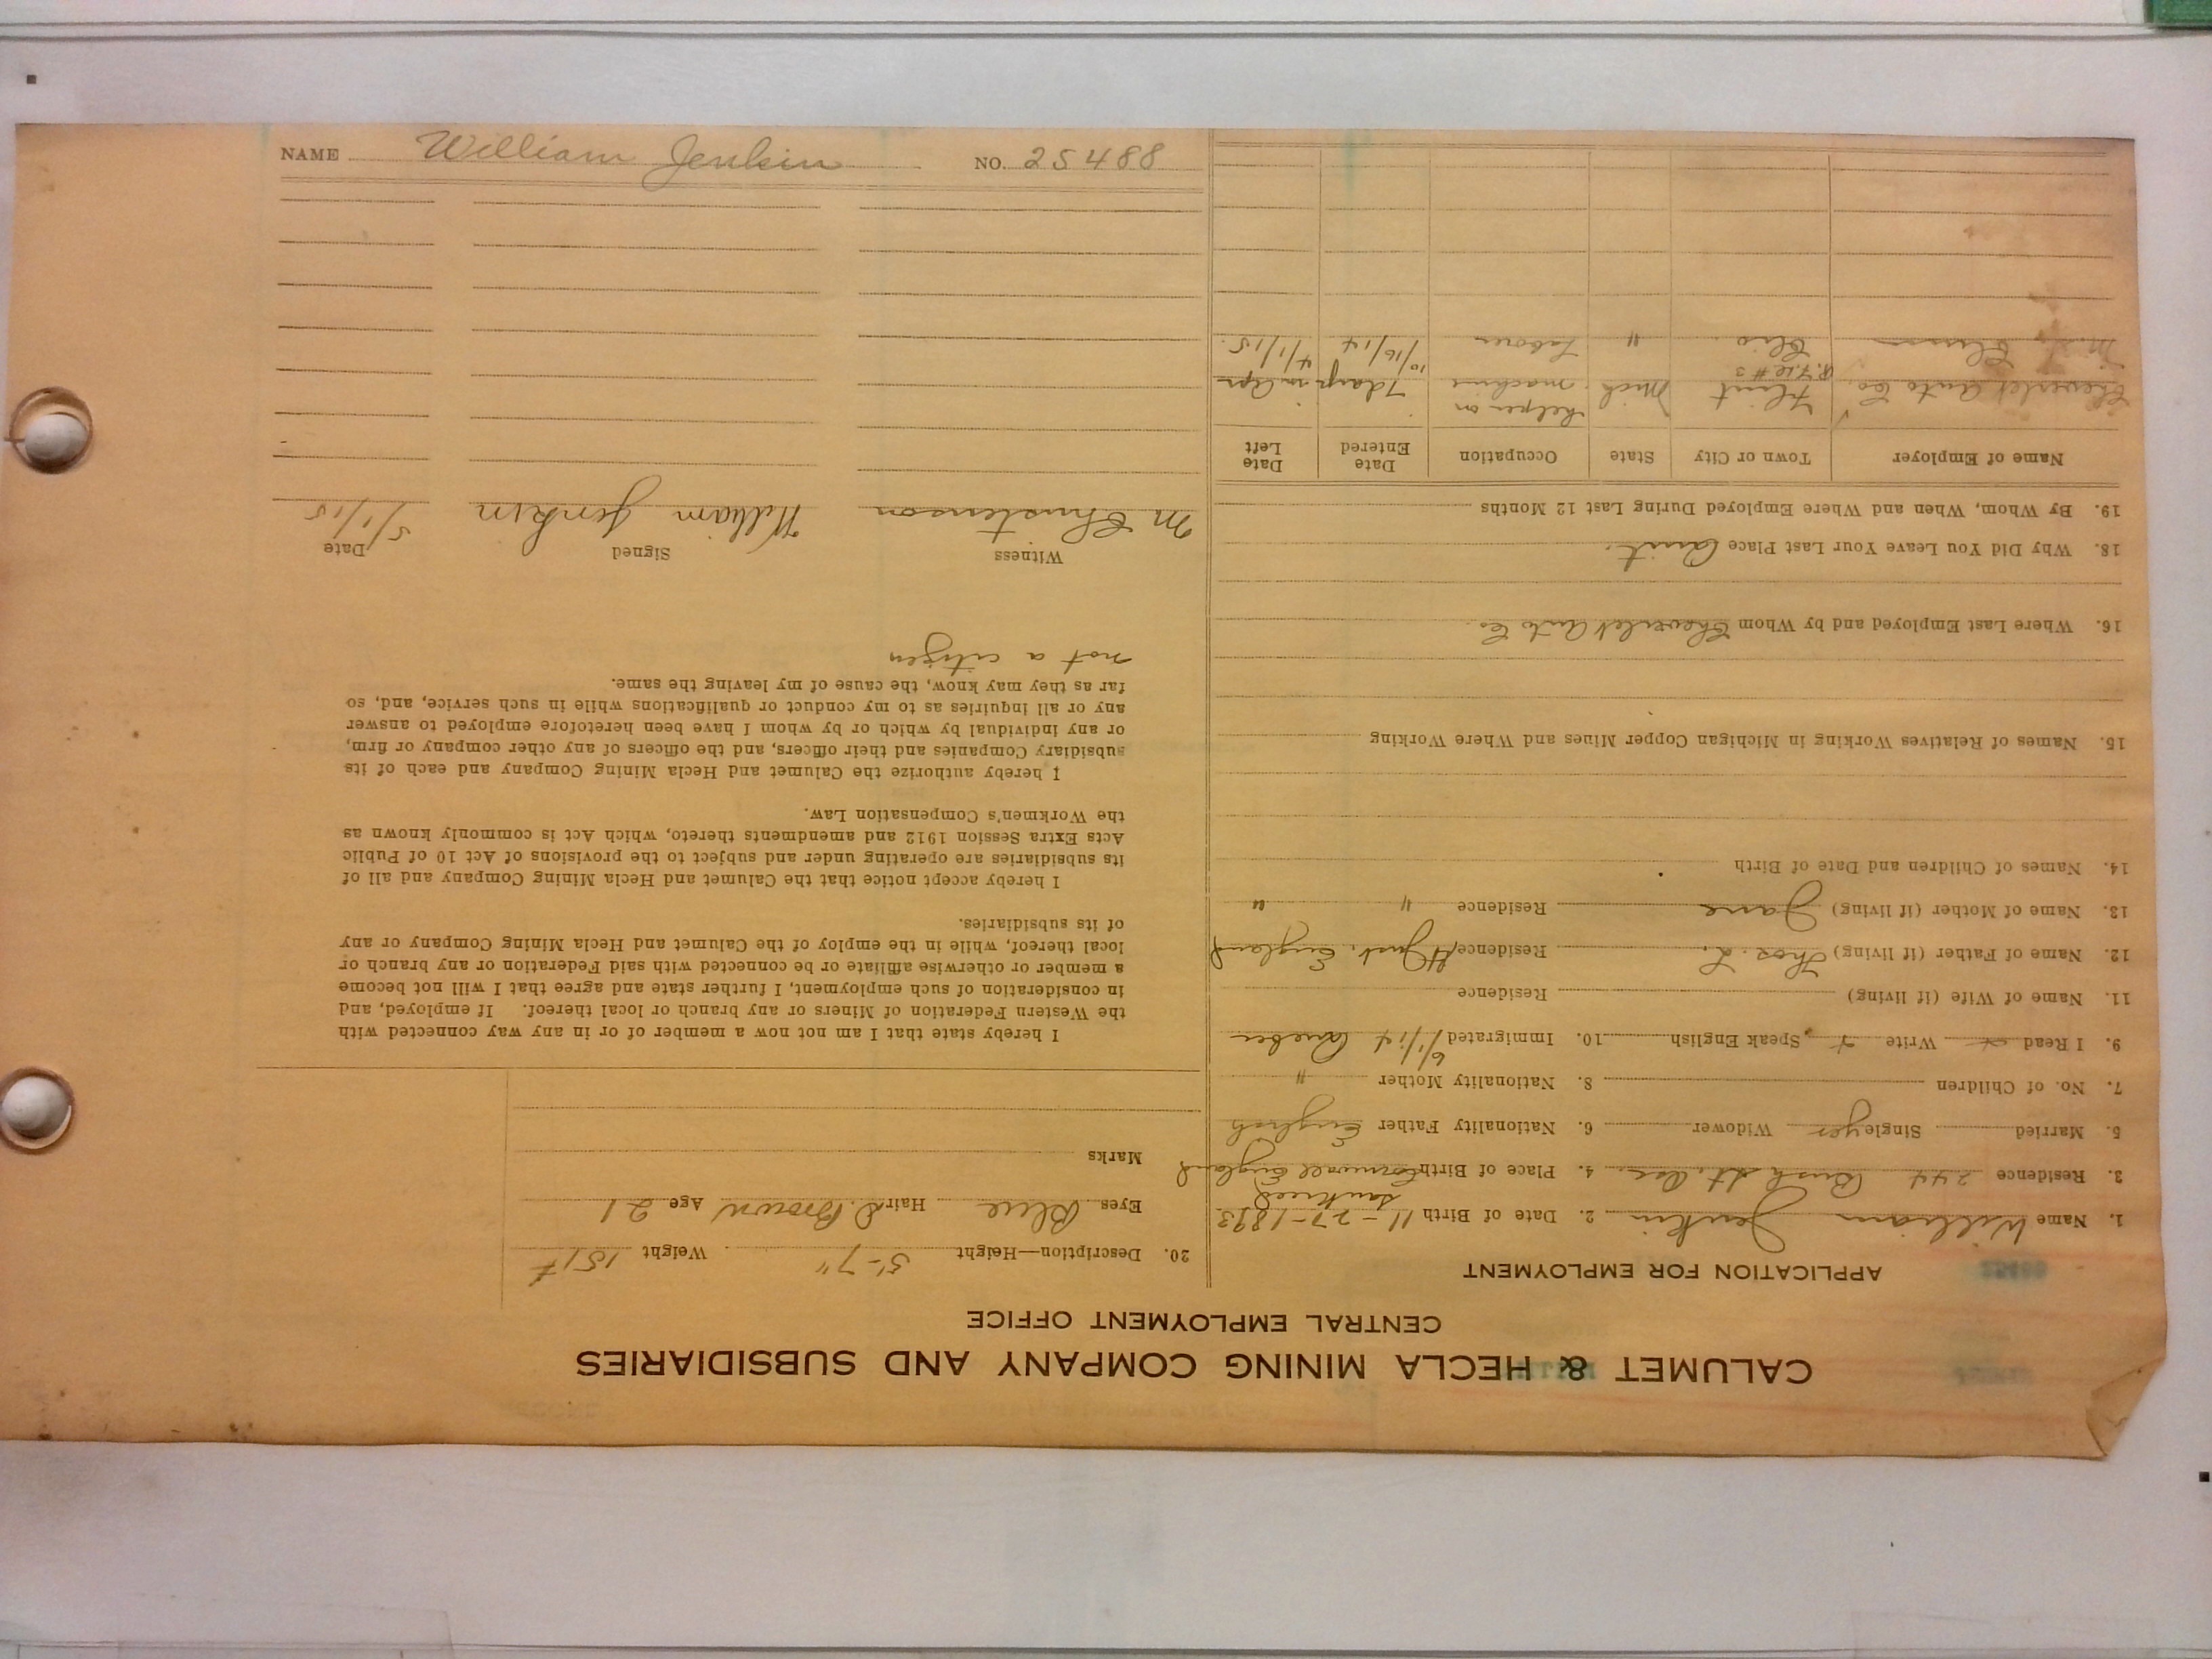 CALUMET & HECLA MINING COMPANY AND SUBSIDIARIES
CENTRAL EMPLOYMENT OFFICE
APPLICATION FOR EMPLOYMENT
1. Name William Jenkin 2. Date of Birth 11-27-1893
3. Residence 244 Bush St. 4. Place of Birth Sancreed Cornwall England
5. Married Single yes Widower 6. Nationality Father English
7. No. of Children 8. Nationality Mother "
9. I Read Write Speak English 10. Immigrated 6/1/14 Quebec
11. Name of Wife (if living) Residence
12. Name of Father (if living) Thos. L. Residence St Just. England
13. Name of Mother (if living) Jane Residence " "
14. Names of Children and Date of Birth
15. Names of Relatives Working in Michigan Copper Mines and Where Working
16. Where Last Employed and by Whom Cheverlet Auto Co.
18. Why Did You Leave Your Last Place Quit.
19. By Whom, When and Where Employed During Last 12 Months
Name of Employer Town or City State Occupation Date Entered Date Left
Cheverlet Auto Co. Flint Mich helper on machine 7 days in Apr
R.F.D. #3
Clio " Laborer 10/16/14 4/1/15.
20. Description—Height 5'-7" Weight 151#
Eyes Blue Hair D. Brown Age 21
Marks
I hereby state that I am not now a member of or in any way connected with
the Western Federation of Miners or any branch or local thereof. If employed, and
in consideration of such employment, I further state and agree that I will not become
a member or otherwise affiliate or be connected with said Federation or any branch or
local thereof, while in the employ of the Calumet and Hecla Mining Company or any
of its subsidiaries.
I hereby accept notice that the Calumet and Hecla Mining Company and all of
its subsidiaries are operating under and subject to the provisions of Act 10 of Public
Acts Extra Session 1912 and amendments thereto, which Act is commonly known as
the Workmen's Compensation Law.
I hereby authorize the Calumet and Hecla Mining Company and each of its
subsidiary Companies and their officers, and the officers of any other company or firm,
or any individual by which or by whom I have been heretofore employed to answer
any or all inquiries as to my conduct or qualifications while in such service, and, so
far as they may know, the cause of my leaving the same.
not a citizen
Witness Signed Date
M Christenson William Jenkin 5/1/15
NAME William Jenkin NO. 25488